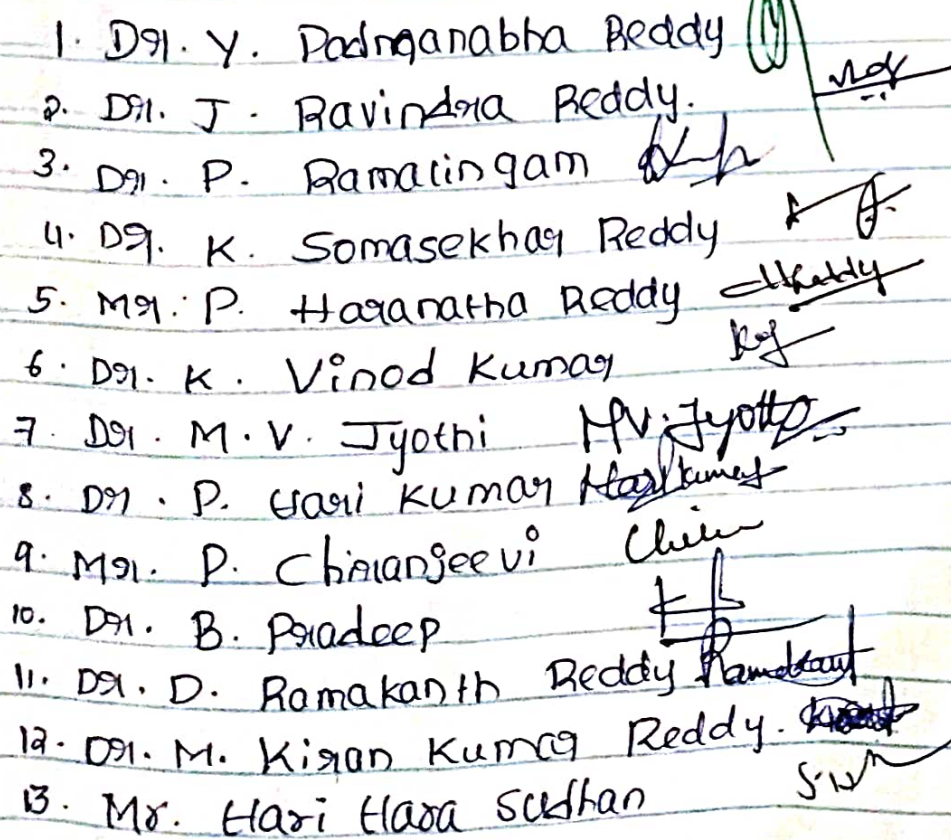 1. Dr. Y. Padnganabha Reddy
2. Dr. J. Ravindra Reddy.
3. Dr. P. Ramalingam
4. Dr. K. Somasekhar Reddy
5. Mr. P. Haranatha Reddy HReddy
6. Dr. K. Vinod Kumar
7. Dr. M. V. Jyothi MV. Jyothi
8. Dr. P. Hari Kumar Harikumar
9. Mr. P. Chiranjeevi
10. Dr. B. Pradeep
11. Dr. D. Ramakanth Reddy Ramakant
12. Dr. M. Kiran Kumar Reddy.
13. Mr. Hari Hara Sudhan